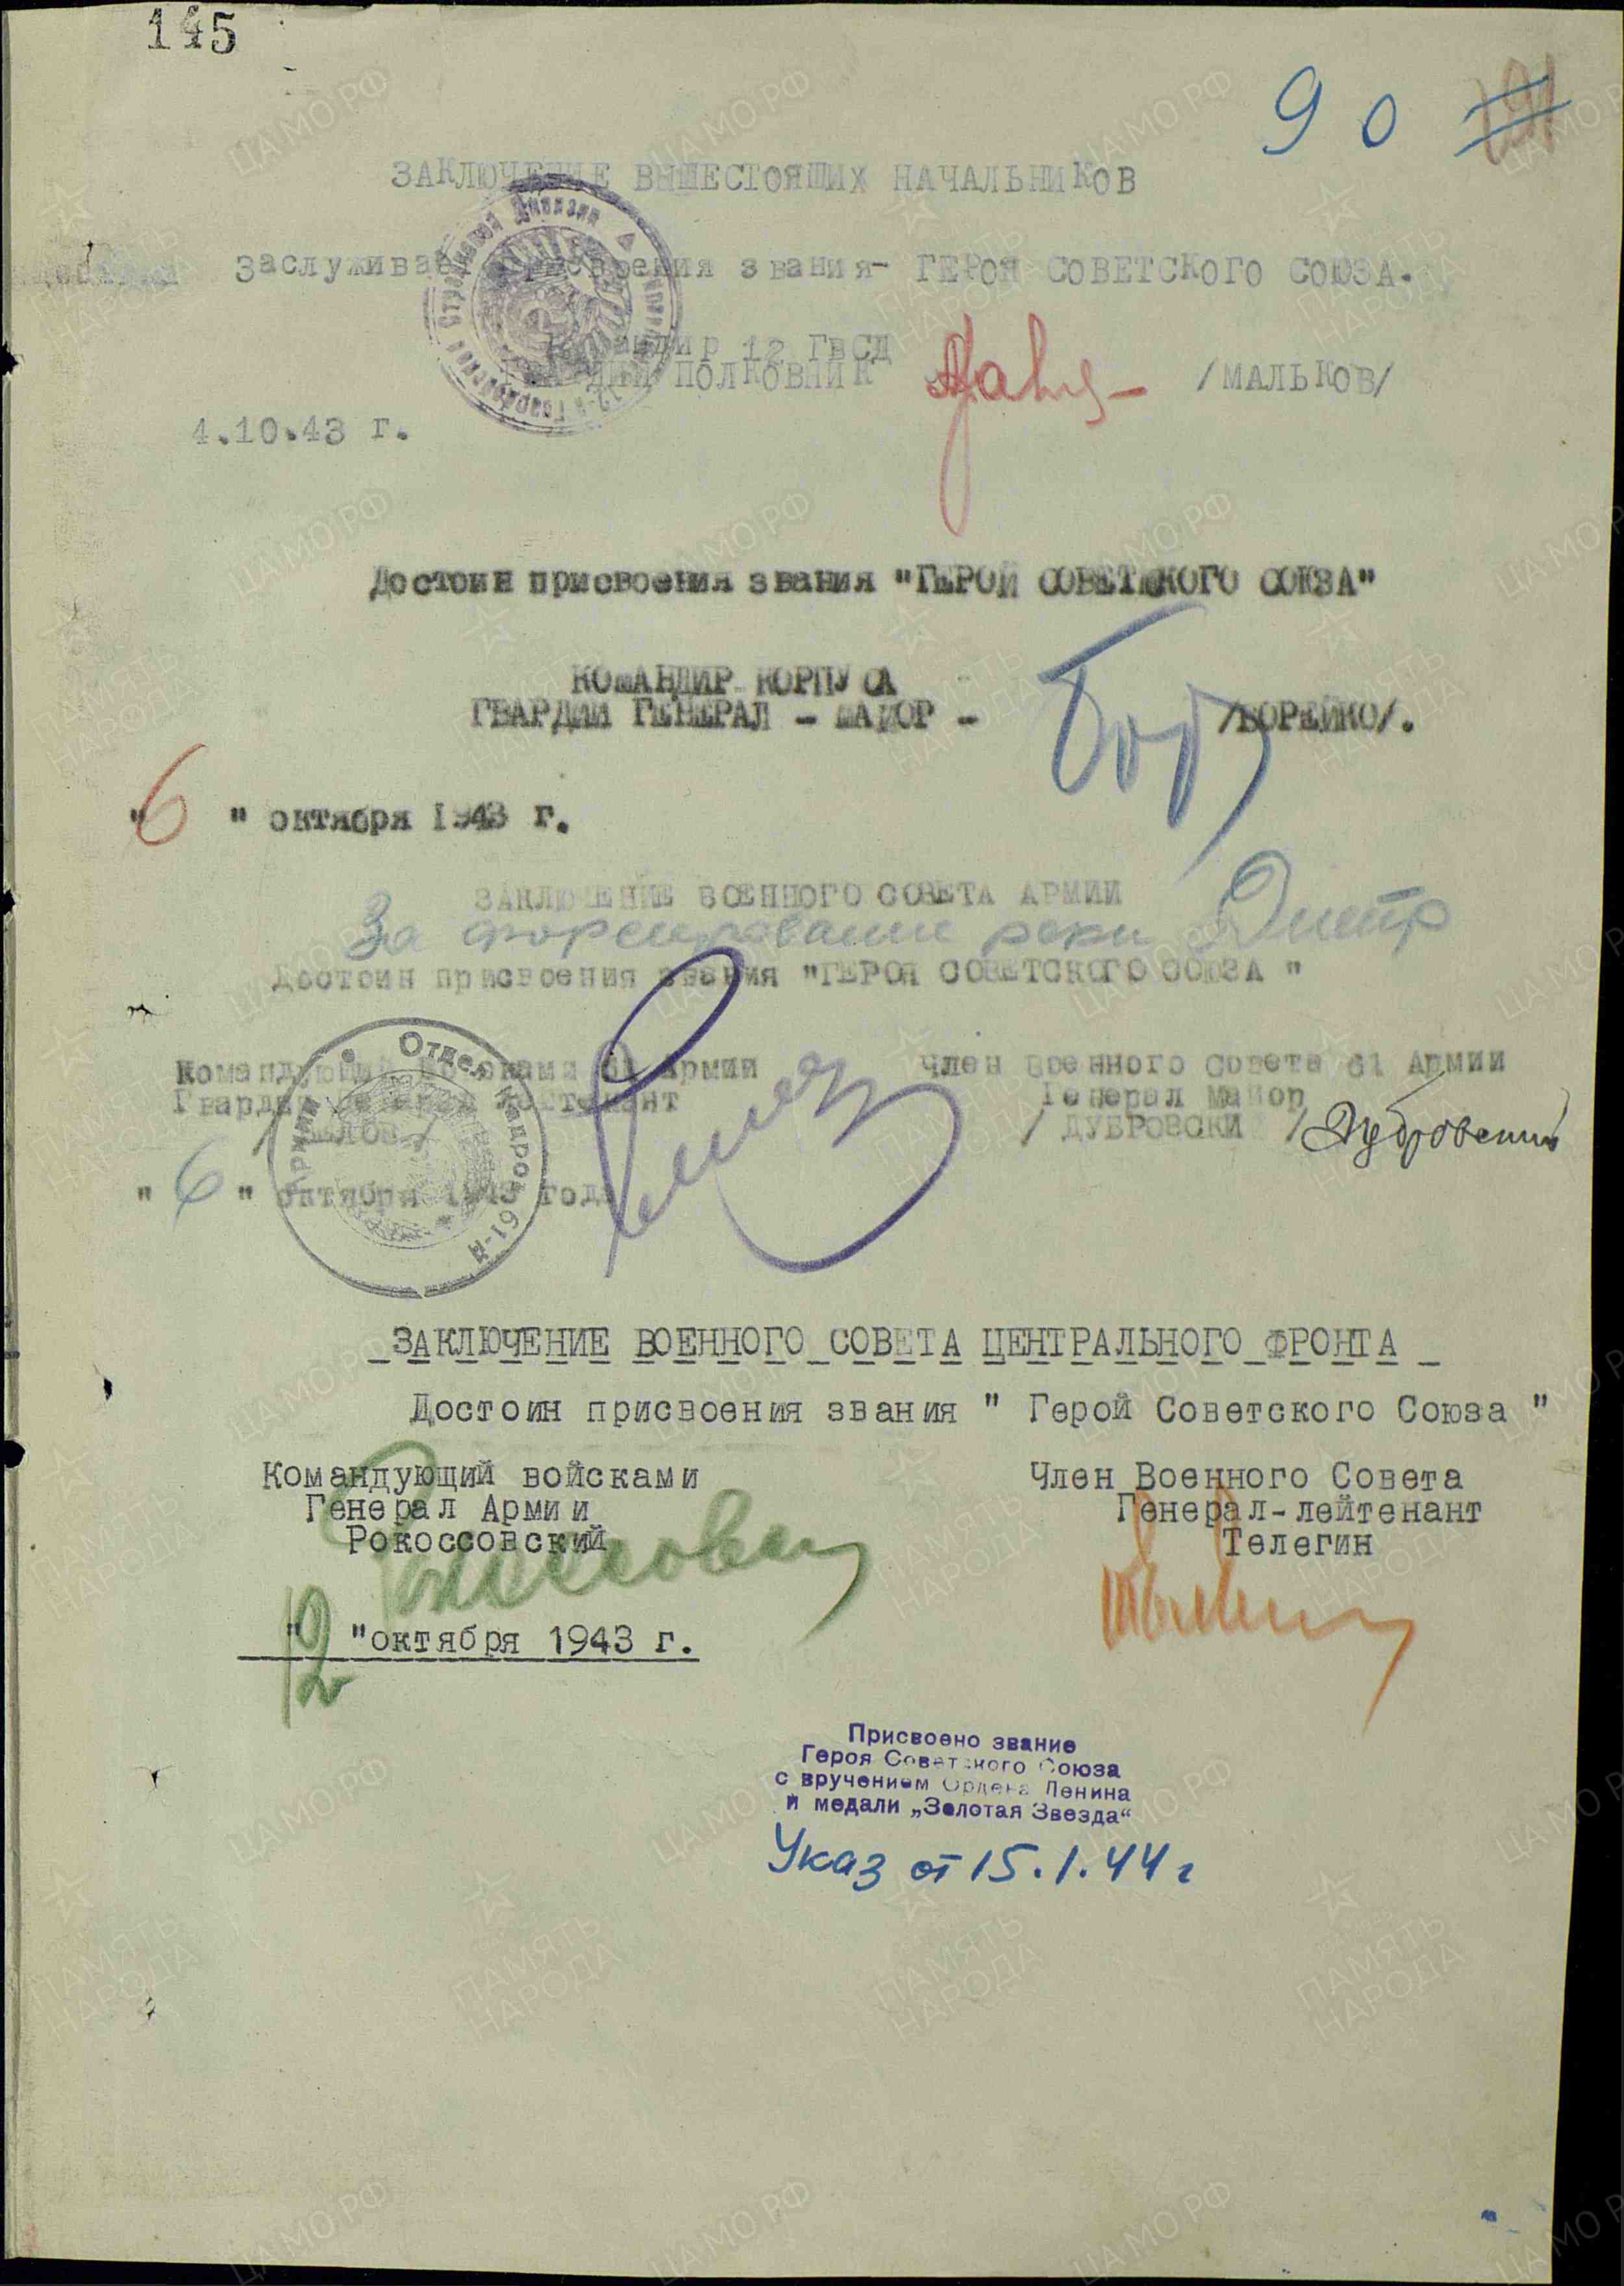 145
90
ЗАКЛЮЧЕНИЕ ВЫШЕСТОЯЩИХ НАЧАЛЬНИКОВ
Заслуживает присвоения звания- ГЕРОЯ СОВЕТСКОГО СОЮЗА.
Командир 12 ГвСД
гвардии полковник /МАЛЬКОВ/
4.10.43 г.
Достоин присвоения звания "ГЕРОЙ СОВЕТСКОГО СОЮЗА"
КОМАНДИР КОРПУСА
ГВАРДИИ ГЕНЕРАЛ - МАЙОР - /БОРЕЙКО/.
"6" октября 1943 г.
ЗАКЛЮЧЕНИЕ ВОЕННОГО СОВЕТА АРМИИ
За форсирование реки Днепр
Достоин присвоения звания "ГЕРОЯ СОВЕТСКОГО СОЮЗА "
Командующий войсками 61 Армии Член Военного Совета 61 Армии
Гвардии Генерал Лейтенант Генерал Майор
/ Белов / / ДУБРОВСКИ / Дубровский
"6" октября 1943 года
Отдел Кадров 61-й Армии
ЗАКЛЮЧЕНИЕ ВОЕННОГО СОВЕТА ЦЕНТРАЛЬНОГО ФРОНТА
Достоин присвоения звания " Герой Советского Союза "
Командующий войсками Член Военного Совета
Генерал Армии Генерал-лейтенант
Рокоссовский Телегин
"12 "октября 1943 г.
Присвоено звание
Героя Советского Союза
с вручением Ордена Ленина
и медали „Золотая Звезда“
Указ от 15.1.44 г